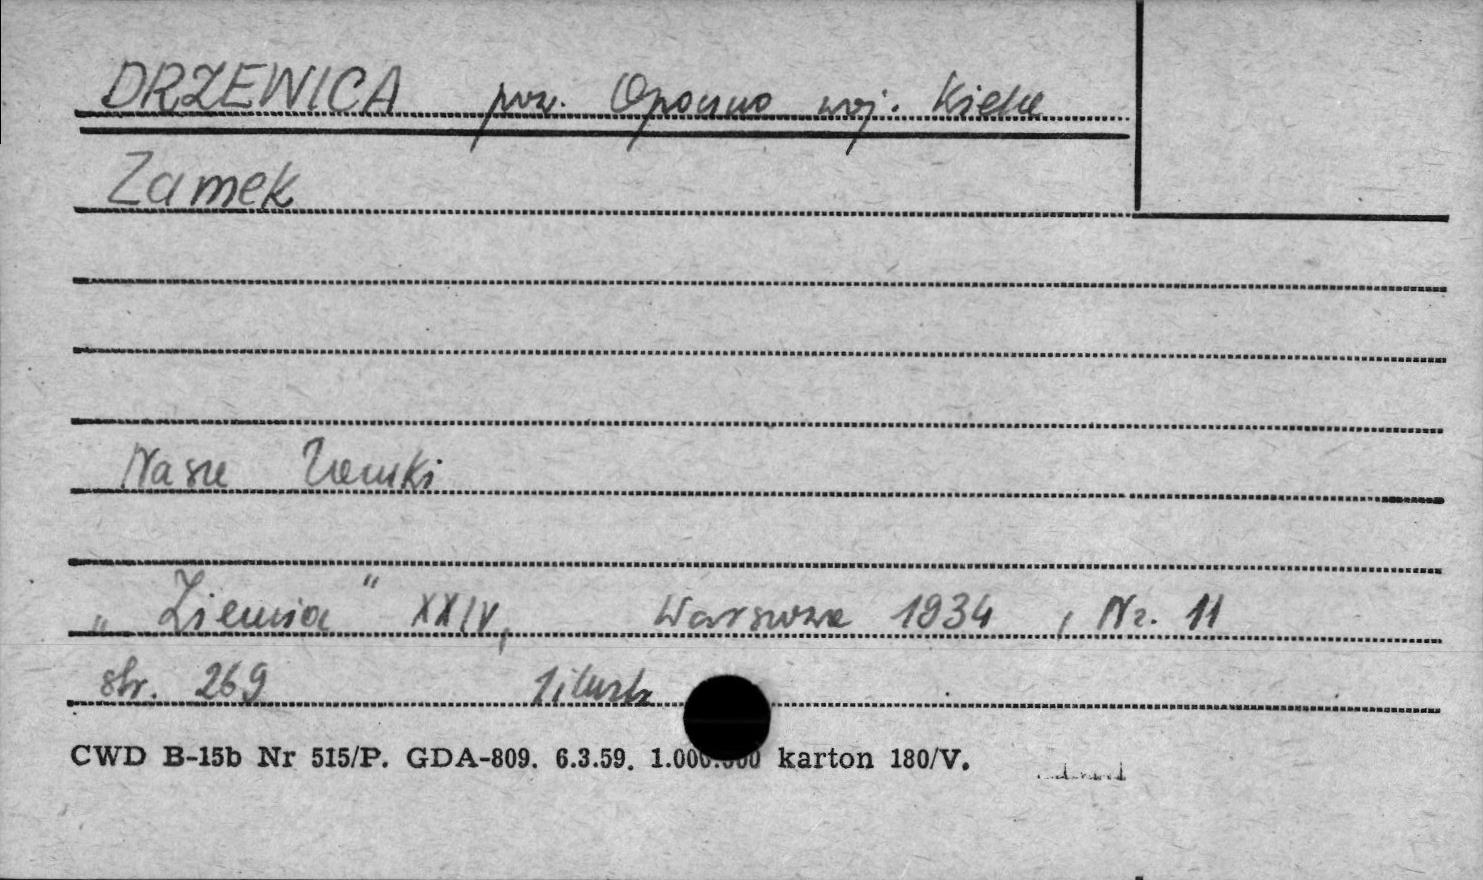 DRZEWICA pow. Opoczno woj. Kielce
Zamek
Nasze Zamki
„Ziemia" XXIV, Warszawa 1934, Nr. 11
str. 269 1 ilustr
CWD B-15b Nr 515/P. GDA-809. 6.3.59. 1.000.000 karton 180/V.